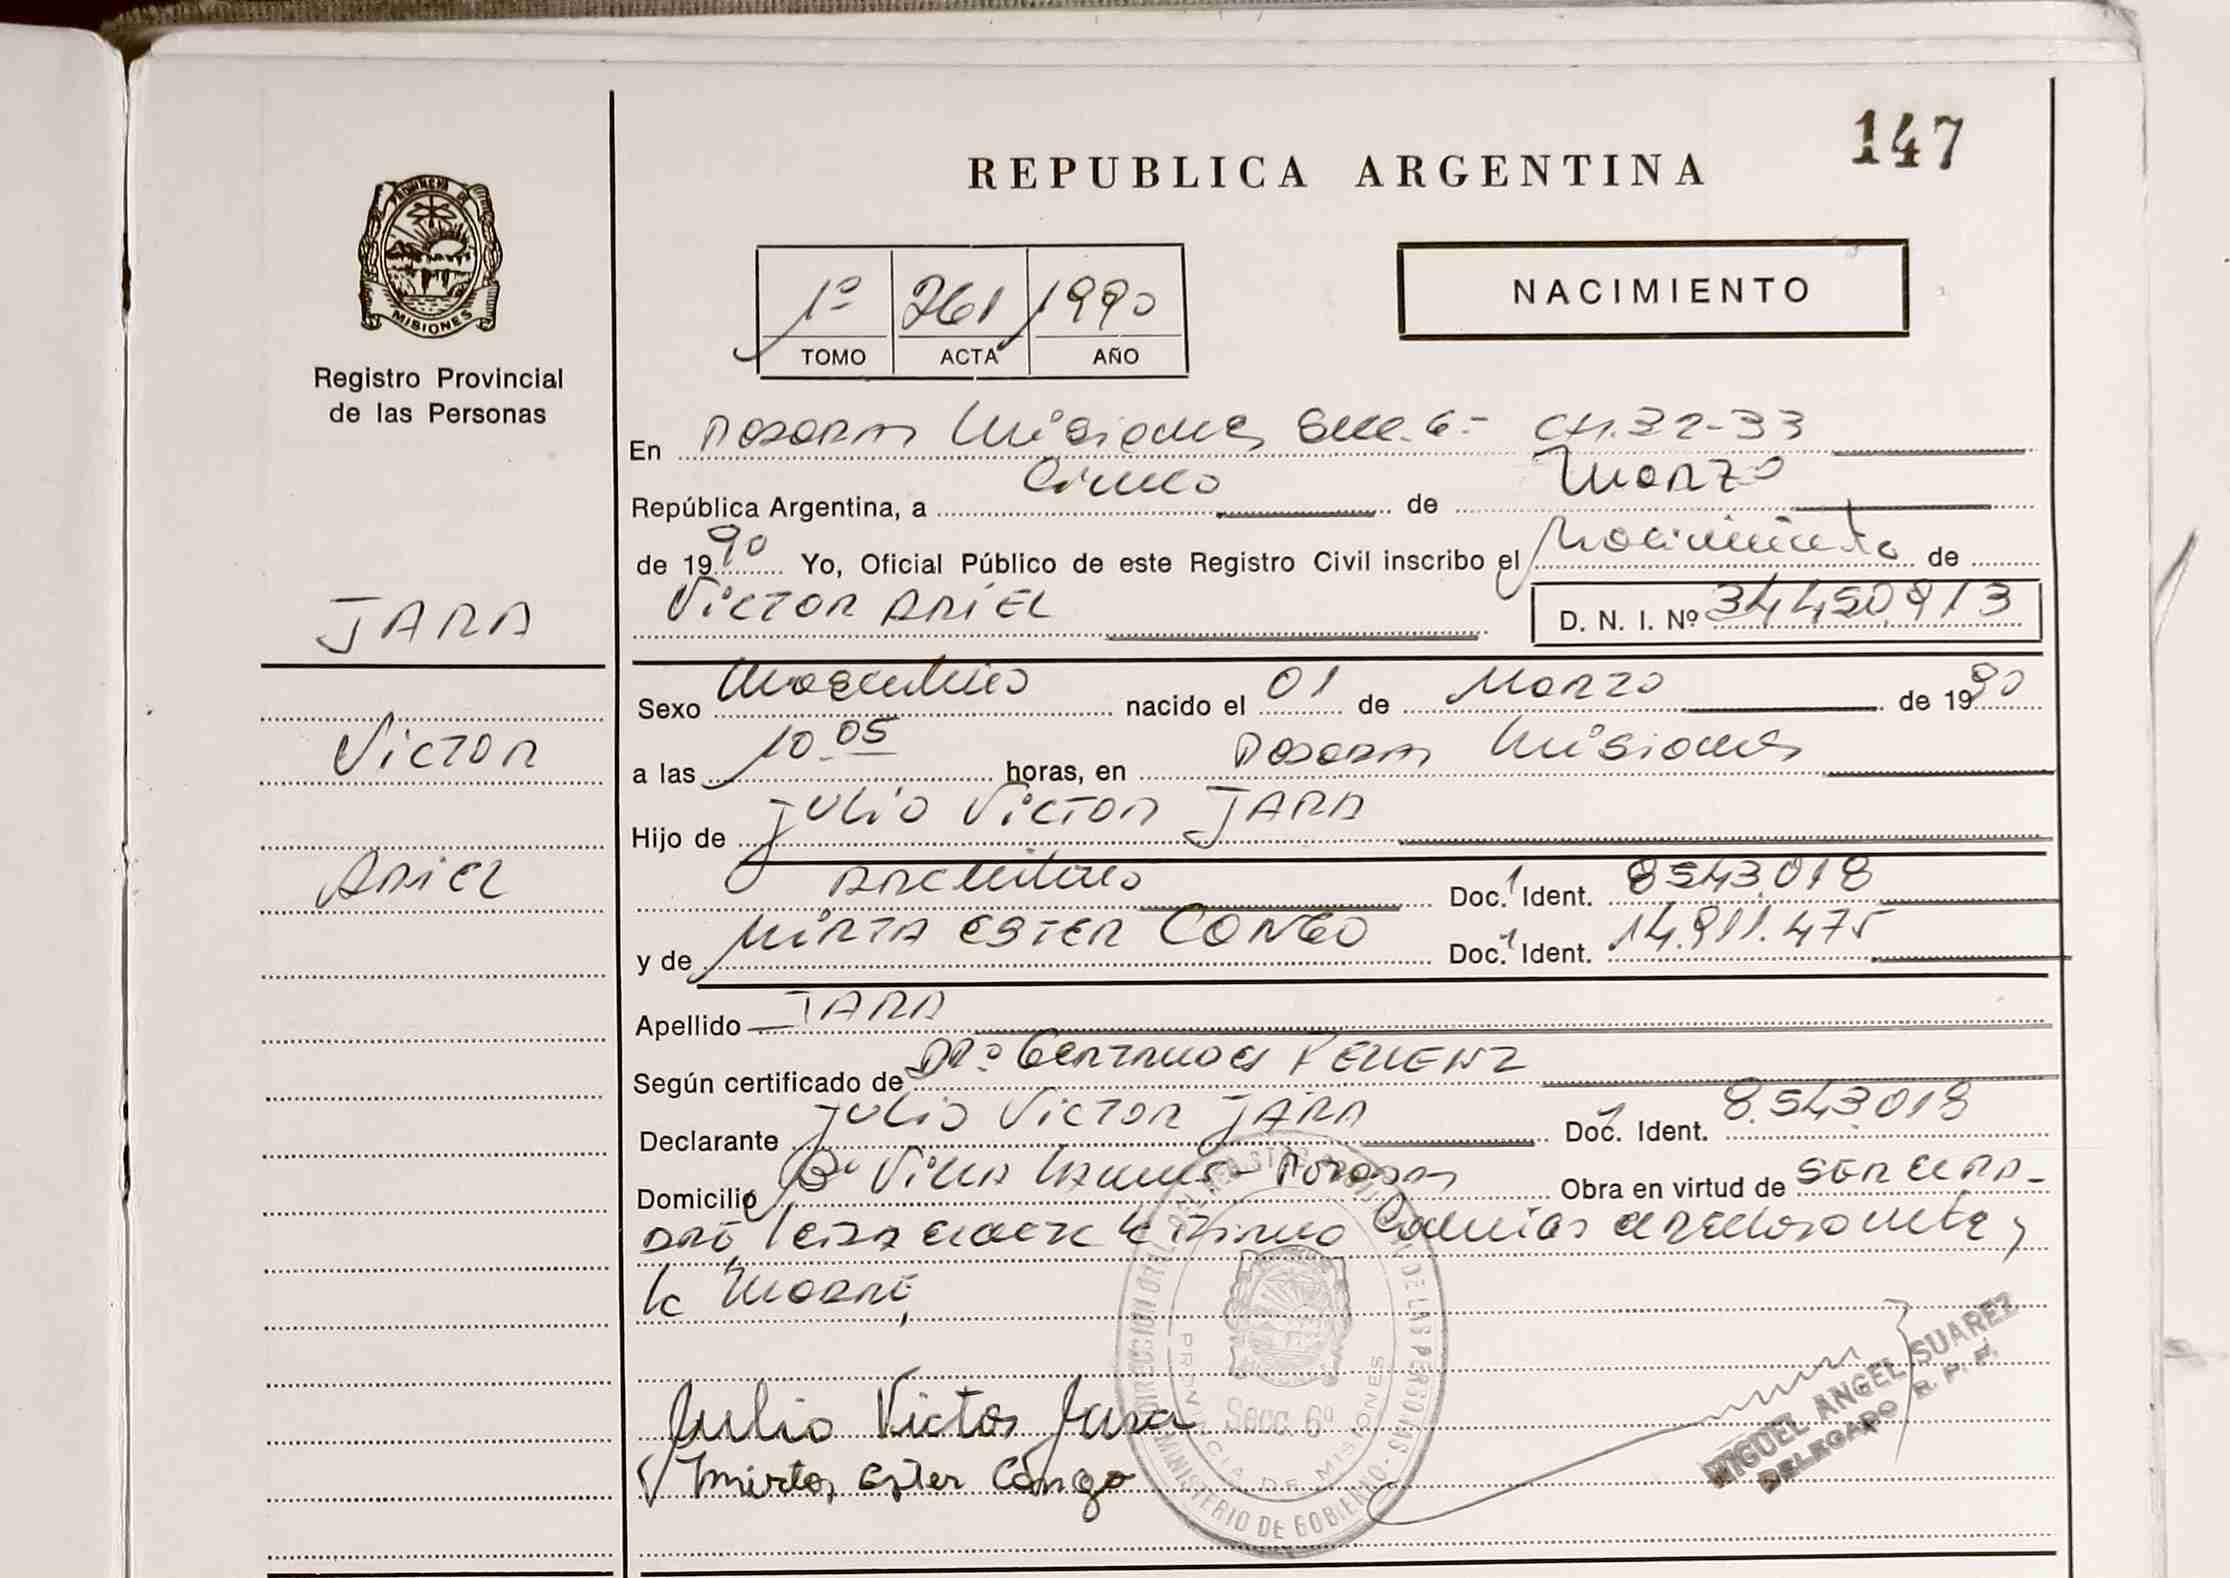 147
REPUBLICA ARGENTINA
NACIMIENTO
PROVINCIA DE
MISIONES
Registro Provincial
de las Personas
1º 261 1990
TOMO ACTA AÑO
En Posadas Misiones Secc. 6- CH. 32-33
República Argentina, a Cinco de Marzo
de 1990 Yo, Oficial Público de este Registro Civil inscribo el Nacimiento de
VICTOR ARIEL D. N. I. Nº 34.450.913
JARA
Victor
Ariel
Sexo Masculino nacido el 01 de Marzo de 1990
a las 10.05 horas, en Posadas Misiones
Hijo de JULIO VICTOR JARA
Argentino Doc. Ident. 8.543.018
y de MIRTA ESTER CONGO Doc. Ident. 14.911.475
Apellido JARA
Según certificado de Dra. Gertrudes
Declarante JULIO VICTOR JARA Doc. Ident. 8.543.018
Domicilio Bº Villa Posadas Obra en virtud de SER EL PA-
DRE,
la Madre,
Julio Victor Jara
Mirta Ester Congo
DIRECCION GRAL. DEL REGISTRO PROVINCIAL DE LAS PERSONAS
MINISTERIO DE GOBIERNO
PROVINCIA DE MISIONES
Secc. 6º
MIGUEL ANGEL SUAREZ
DELEGADO R. P. P.